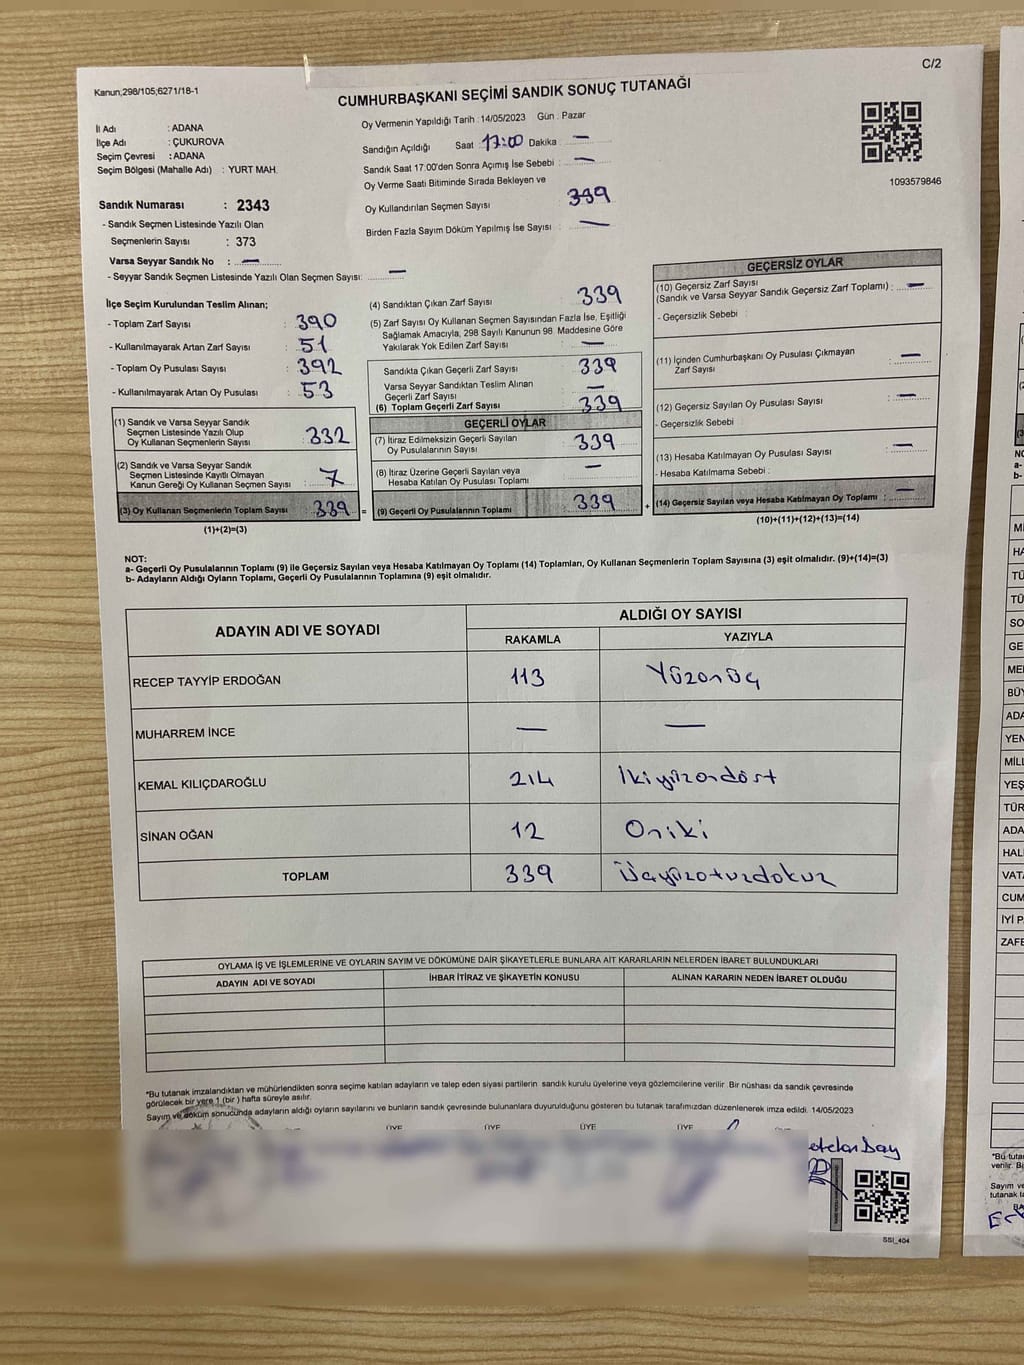 C/2
Kanun;298/105;6271/18-1
CUMHURBAŞKANI SEÇİMİ SANDIK SONUÇ TUTANAĞI
İl Adı : ADANA
İlçe Adı : ÇUKUROVA
Seçim Çevresi : ADANA
Seçim Bölgesi (Mahalle Adı) : YURT MAH.
Sandık Numarası : 2343
- Sandık Seçmen Listesinde Yazılı Olan
Seçmenlerin Sayısı : 373
Varsa Seyyar Sandık No : —
- Seyyar Sandık Seçmen Listesinde Yazılı Olan Seçmen Sayısı: —
Oy Vermenin Yapıldığı Tarih : 14/05/2023 Gün : Pazar
Sandığın Açıldığı Saat 17:00 Dakika : —
Sandık Saat 17:00'den Sonra Açımış İse Sebebi : —
Oy Verme Saati Bitiminde Sırada Bekleyen ve
Oy Kullandırılan Seçmen Sayısı : 339
Birden Fazla Sayım Döküm Yapılmış İse Sayısı : —
1093579846
İlçe Seçim Kurulundan Teslim Alınan;
- Toplam Zarf Sayısı : 390
- Kullanılmayarak Artan Zarf Sayısı : 51
- Toplam Oy Pusulası Sayısı : 392
- Kullanılmayarak Artan Oy Pusulası : 53
(1) Sandık ve Varsa Seyyar Sandık
Seçmen Listesinde Yazılı Olup
Oy Kullanan Seçmenlerin Sayısı : 332
(2) Sandık ve Varsa Seyyar Sandık
Seçmen Listesinde Kayıtlı Olmayan
Kanun Gereği Oy Kullanan Seçmen Sayısı : 7
(3) Oy Kullanan Seçmenlerin Toplam Sayısı : 339 =
(1)+(2)=(3)
(4) Sandıktan Çıkan Zarf Sayısı : 339
(5) Zarf Sayısı Oy Kullanan Seçmen Sayısından Fazla İse, Eşitliği
Sağlamak Amacıyla, 298 Sayılı Kanunun 98. Maddesine Göre
Yakılarak Yok Edilen Zarf Sayısı : —
Sandıkta Çıkan Geçerli Zarf Sayısı : 339
Varsa Seyyar Sandıktan Teslim Alınan
Geçerli Zarf Sayısı : —
(6) Toplam Geçerli Zarf Sayısı : 339
GEÇERLİ OYLAR
(7) İtiraz Edilmeksizin Geçerli Sayılan
Oy Pusulalarının Sayısı : 339
(8) İtiraz Üzerine Geçerli Sayılan veya
Hesaba Katılan Oy Pusulası Toplamı : —
(9) Geçerli Oy Pusulalarının Toplamı : 339 +
GEÇERSİZ OYLAR
(10) Geçersiz Zarf Sayısı
(Sandık ve Varsa Seyyar Sandık Geçersiz Zarf Toplamı) : —
- Geçersizlik Sebebi :
(11) İçinden Cumhurbaşkanı Oy Pusulası Çıkmayan
Zarf Sayısı : —
(12) Geçersiz Sayılan Oy Pusulası Sayısı : —
- Geçersizlik Sebebi
(13) Hesaba Katılmayan Oy Pusulası Sayısı : —
- Hesaba Katılmama Sebebi :
(14) Geçersiz Sayılan veya Hesaba Katılmayan Oy Toplamı : —
(10)+(11)+(12)+(13)=(14)
NOT:
a- Geçerli Oy Pusulalarının Toplamı (9) ile Geçersiz Sayılan veya Hesaba Katılmayan Oy Toplamı (14) Toplamları, Oy Kullanan Seçmenlerin Toplam Sayısına (3) eşit olmalıdır. (9)+(14)=(3)
b- Adayların Aldığı Oyların Toplamı, Geçerli Oy Pusulalarının Toplamına (9) eşit olmalıdır.
ADAYIN ADI VE SOYADI ALDIĞI OY SAYISI
RAKAMLA YAZIYLA
RECEP TAYYİP ERDOĞAN 113 Yüzonüç
MUHARREM İNCE — —
KEMAL KILIÇDAROĞLU 214 İkiyüzondört
SİNAN OĞAN 12 Oniki
TOPLAM 339 Üçyüzotuzdokuz
OYLAMA İŞ VE İŞLEMLERİNE VE OYLARIN SAYIM VE DÖKÜMÜNE DAİR ŞİKAYETLERLE BUNLARA AİT KARARLARIN NELERDEN İBARET BULUNDUKLARI
ADAYIN ADI VE SOYADI İHBAR İTİRAZ VE ŞİKAYETİN KONUSU ALINAN KARARIN NEDEN İBARET OLDUĞU
*Bu tutanak imzalandıktan ve mühürlendikten sonra seçime katılan adayların ve talep eden siyasi partilerin sandık kurulu üyelerine veya gözlemcilerine verilir. Bir nüshası da sandık çevresinde
görülecek bir yere 1 (bir) hafta süreyle asılır.
Sayım ve döküm sonucunda adayların aldığı oyların sayılarını ve bunların sandık çevresinde bulunanlara duyurulduğunu gösteren bu tutanak tarafımızdan düzenlenerek imza edildi. 14/05/2023
ÜYE ÜYE ÜYE ÜYE
SSI_404
NO
a-
b-
Mİ
HA
TÜ
TÜ
SO
GE
ME
BÜY
ADA
YEN
MİLL
YEŞ
TÜR
ADA
HAL
VAT
CUM
İYİ P
ZAFE
*Bu tuta
verilir. Ba
Sayım ve
tutanak ta